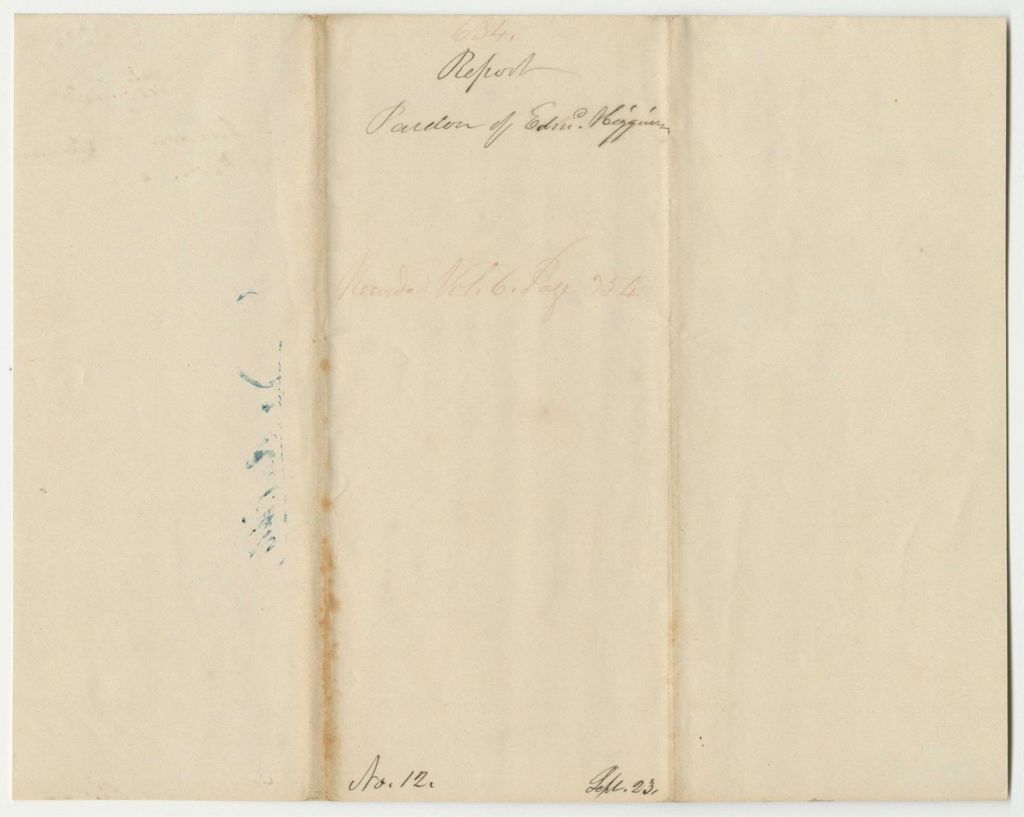 634.
Report
Pardon of Edmd. Higgins
Recorded Vol. 6. Page 354
No. 12.
Sept. 23.